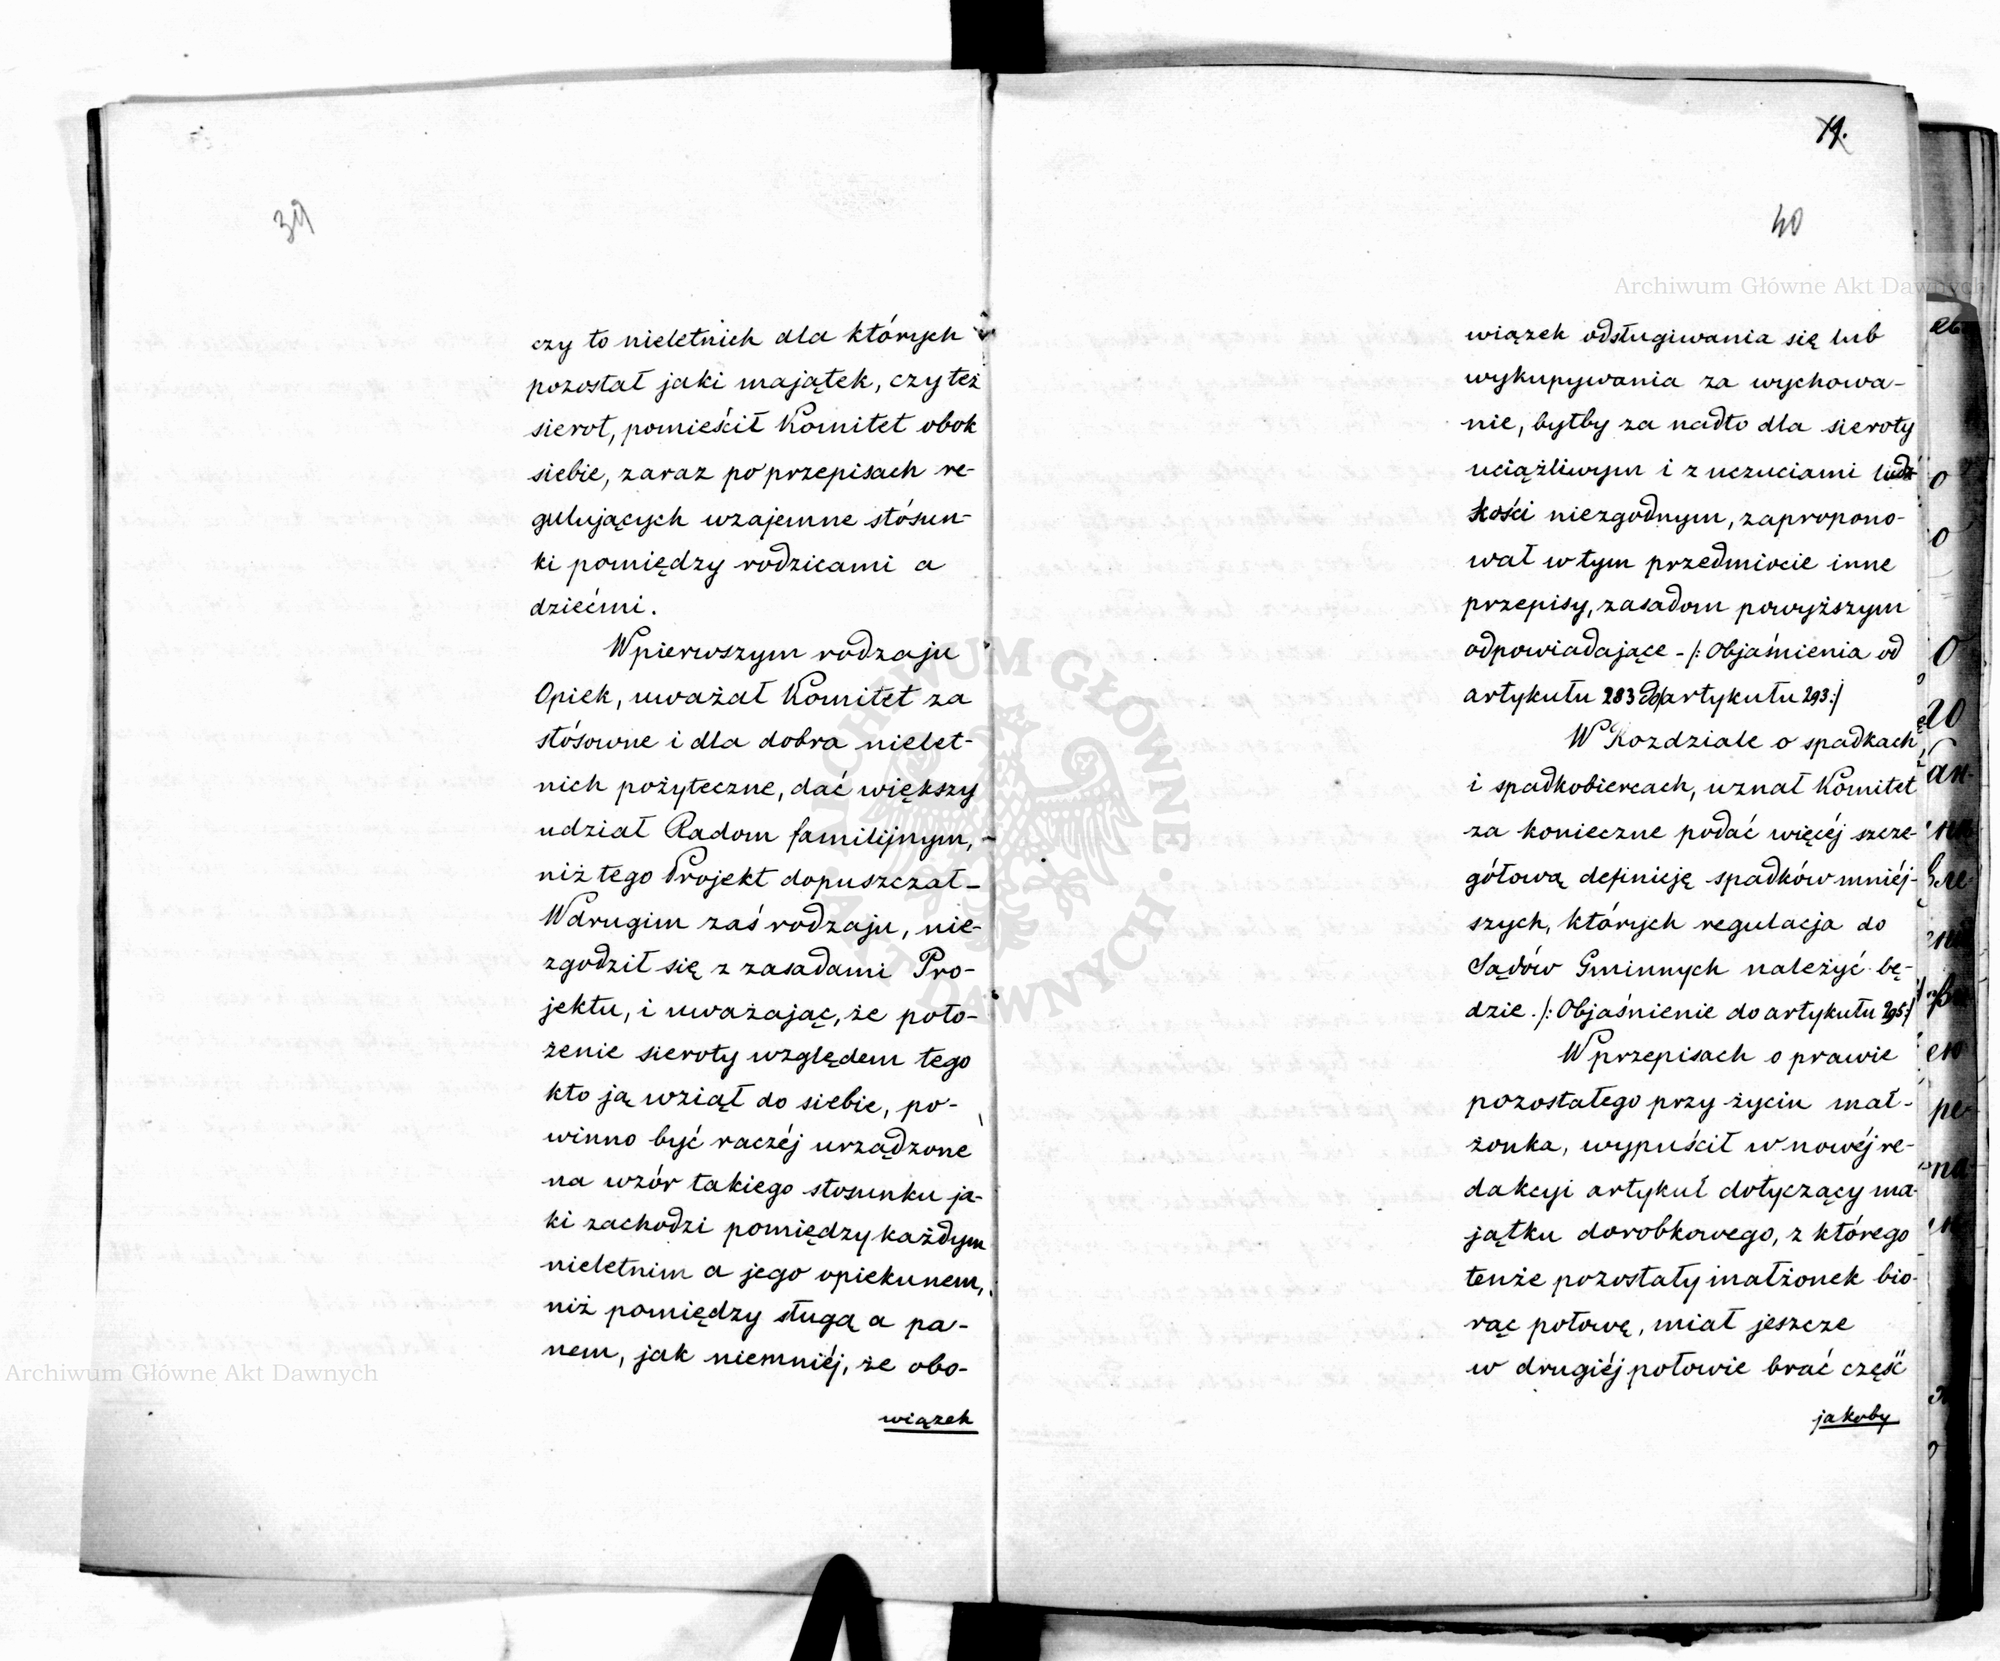 39
czy to nieletnich dla których
pozostał jaki majątek, czy też
sierot, pomieścił Komitet obok
siebie, zaraz po przepisach re-
gulujących wzajemne stósun-
ki pomiędzy rodzicami a
dziećmi.
W pierwszym rodzaju
Opiek, uważał Komitet za
stósowne i dla dobra nielet-
nich pożyteczne, dać większy
udział Radom familijnym,
niż tego Projekt dopuszczał –
W drugim zaś rodzaju, nie-
zgodził się z zasadami Pro-
jektu, i uważając, że poło-
żenie sieroty względem tego
kto ją wziął do siebie, po-
winno być raczéj urządzone
na wzór takiego stosunku ja-
ki zachodzi pomiędzy każdym
nieletnim a jego opiekunem,
niż pomiędzy sługą a pa-
nem, jak niemniéj, że obo-
wiązek
40
wiązek odsługiwania się lub
wykupywania za wychowa-
nie, byłby za nadto dla sieroty
uciążliwym i z uczuciami ludz
kości niezgodnym, zapropono-
wał w tym przedmiocie inne
przepisy, zasadom powyższym
odpowiadające – /: Objaśnienia od
artykułu 283 do artykułu 293 :/
W Rozdziale o spadkach
i spadkobiercach, uznał Komitet
za konieczne podać więcéj szcze-
gółową definicję spadków mniéj-
szych, których regulacja do
Sądów Gminnych należyć bę-
dzie. /: Objaśnienie do artykułu 295 :/
W przepisach o prawie
pozostałego przy życiu mał-
żonka, wypuścił w nowéj re-
dakcyi artykuł dotyczący ma-
jątku dorobkowego, z którego
tenże pozostały małżonek bio-
rąc połowę, miał jeszcze
w drugiéj połowie brać część
jakoby
Archiwum Główne Akt Dawnych
Archiwum Główne Akt Dawnych
ARCHIWUM GŁÓWNE AKT DAWNYCH